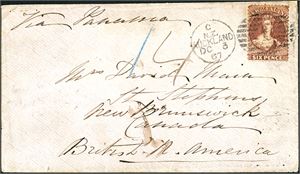 Via Panama
C
N.Z.
AUCKLAND
DE 3
67
SIX PENCE
Mrs David Main
St Stephens
New Brunswick
Canada
British N. America